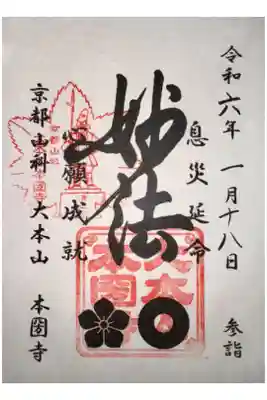 令和六年 一月十八日 参詣
息災延命
妙法
心願成就
京都山科 大本山 本圀寺
大本山
本圀寺